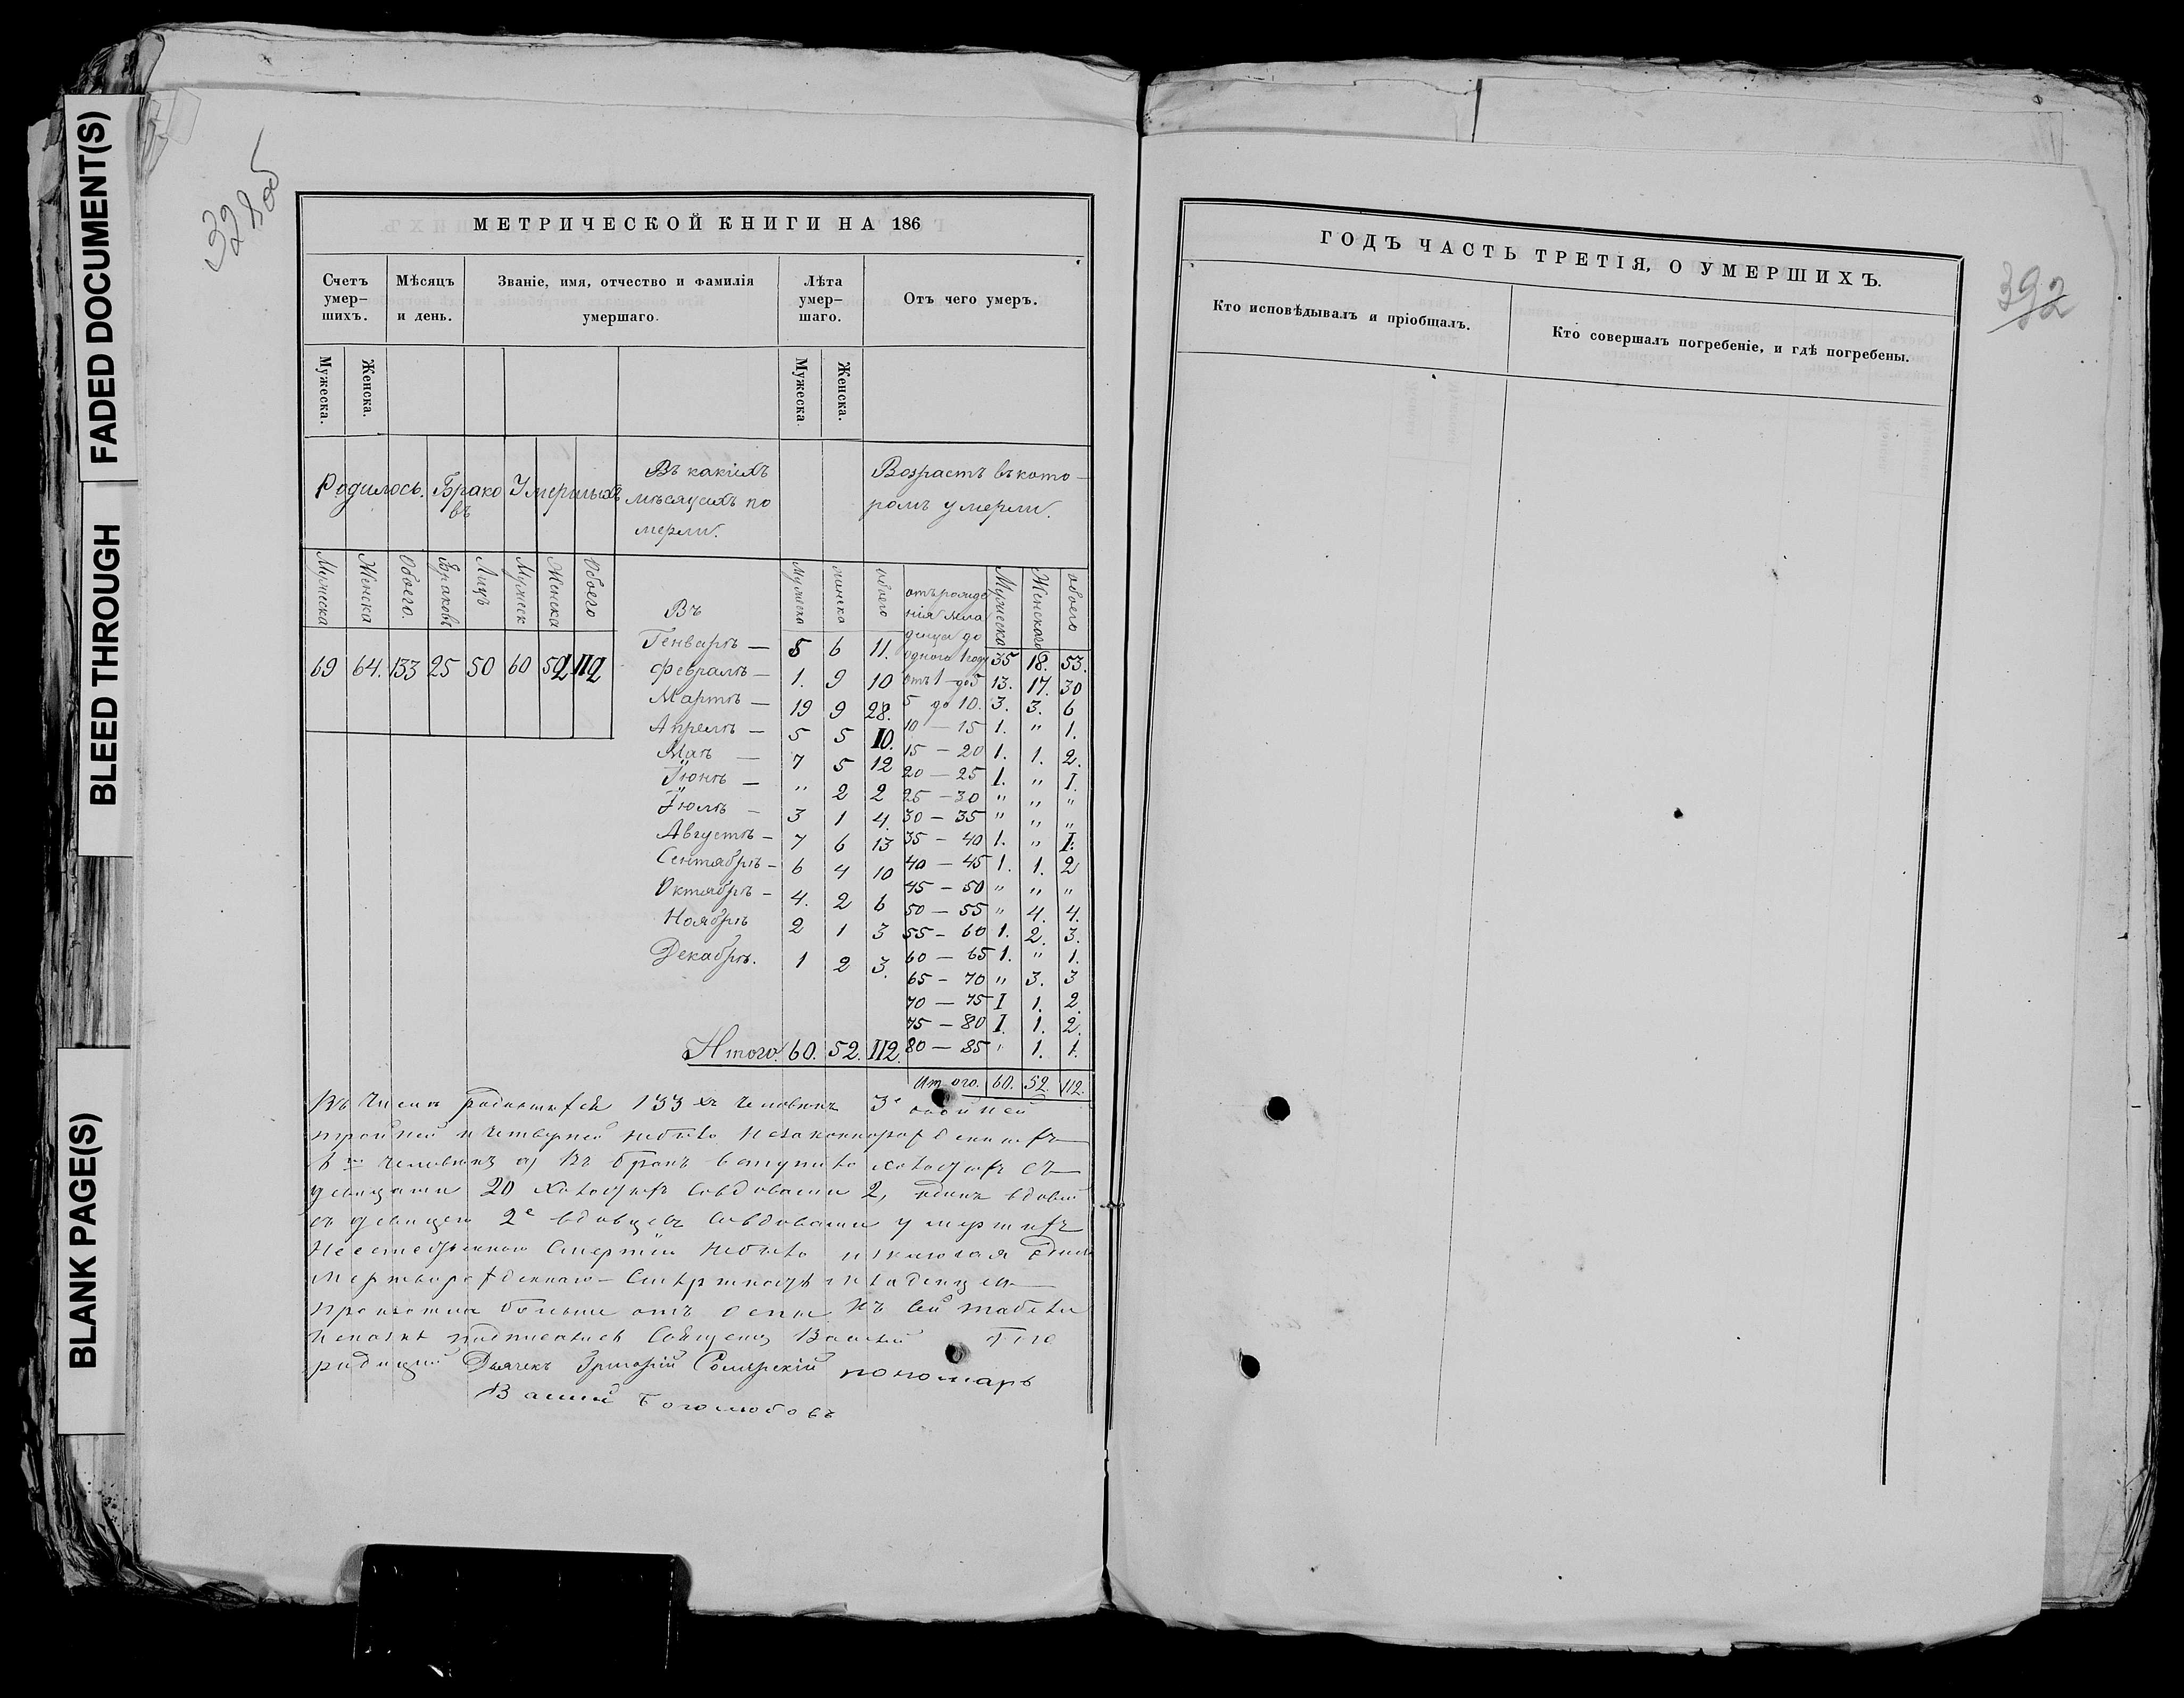 FADED DOCUMENT(S)
BLEED THROUGH
BLANK PAGE(S)
328об
МЕТРИЧЕСКОЙ КНИГИ НА 186
Счетъ умер-шихъ. Мѣсяцъ и день. Званіе, имя, отчество и фамилія умершаго. Лѣта умер-шаго. Отъ чего умеръ.
Мужеска. Женска. Мужеска Женска.
Родилось. Браковъ Умершыхъ Въ какіихъ мѣсяцахъ померли. Возрастъ въ которомъ умерли.
Мужеска Женска Обоего. Браковъ Лицъ Мужеск Женска Обоего Въ Мужеска женска обоего Мужеска Женскаго обоего
69 64. 133 25 50 60 52 112
Генварѣ — 5 6 11. отъ рожденія младенца до одного 1 году 35 18. 53.
Февралѣ — 1. 9 10 отъ 1 — до 5 13. 17. 30
Мартѣ — 19 9 28. 5 до 10. 3. 3. 6
Апрелѣ — 5 5 10. 10 — 15 1. " 1.
Маѣ — 7 5 12 15 — 20 1. 1. 2.
Іюнѣ — " 2 2 20 — 25 1. " I.
25 — 30 " " "
Іюлѣ — 3 1 4. 30 — 35 " " "
Августѣ — 7 6 13 35 — 40 1. " I.
Сентябрѣ — 6 4 10 40 — 45 1. 1. 2
45 — 50 " " "
Октябрѣ — 4. 2 6 50 — 55 " 4. 4.
Ноябрѣ 2 1 3 55 — 60 1. 2. 3.
Декабрѣ. 1 2 3. 60 — 65 1. " 1.
65 — 70 " 3. 3
70 — 75 I 1. 2.
75 — 80 I. 1. 2.
Итого. 60. 52. 112. 80 — 85 " 1. 1.
Итого. 60. 52. 112.
Въ числѣ родившихся 133хъ человѣкъ 3е двойней
тройней и четверней небыло незаконнорожденныхъ
человѣкъ а) Въ бракъ вступило холостыхъ съ
девицами 20 холостыхъ совдовами 2, одинъ вдовец
съ девицею 2е вдовцевъ совдовами умершихъ
смертію небыло изключая
мерторожденнаго — смертность младенцев
больше отъ оспы Къ сей
подписались Священ Василий
Дьячекъ Григорій пономарь
Василий Боголюбовъ
ГОДЪ ЧАСТЬ ТРЕТІЯ, О УМЕРШИХЪ.
392
Кто исповѣдывалъ и пріобщалъ. Кто совершалъ погребеніе, и гдѣ погребены.